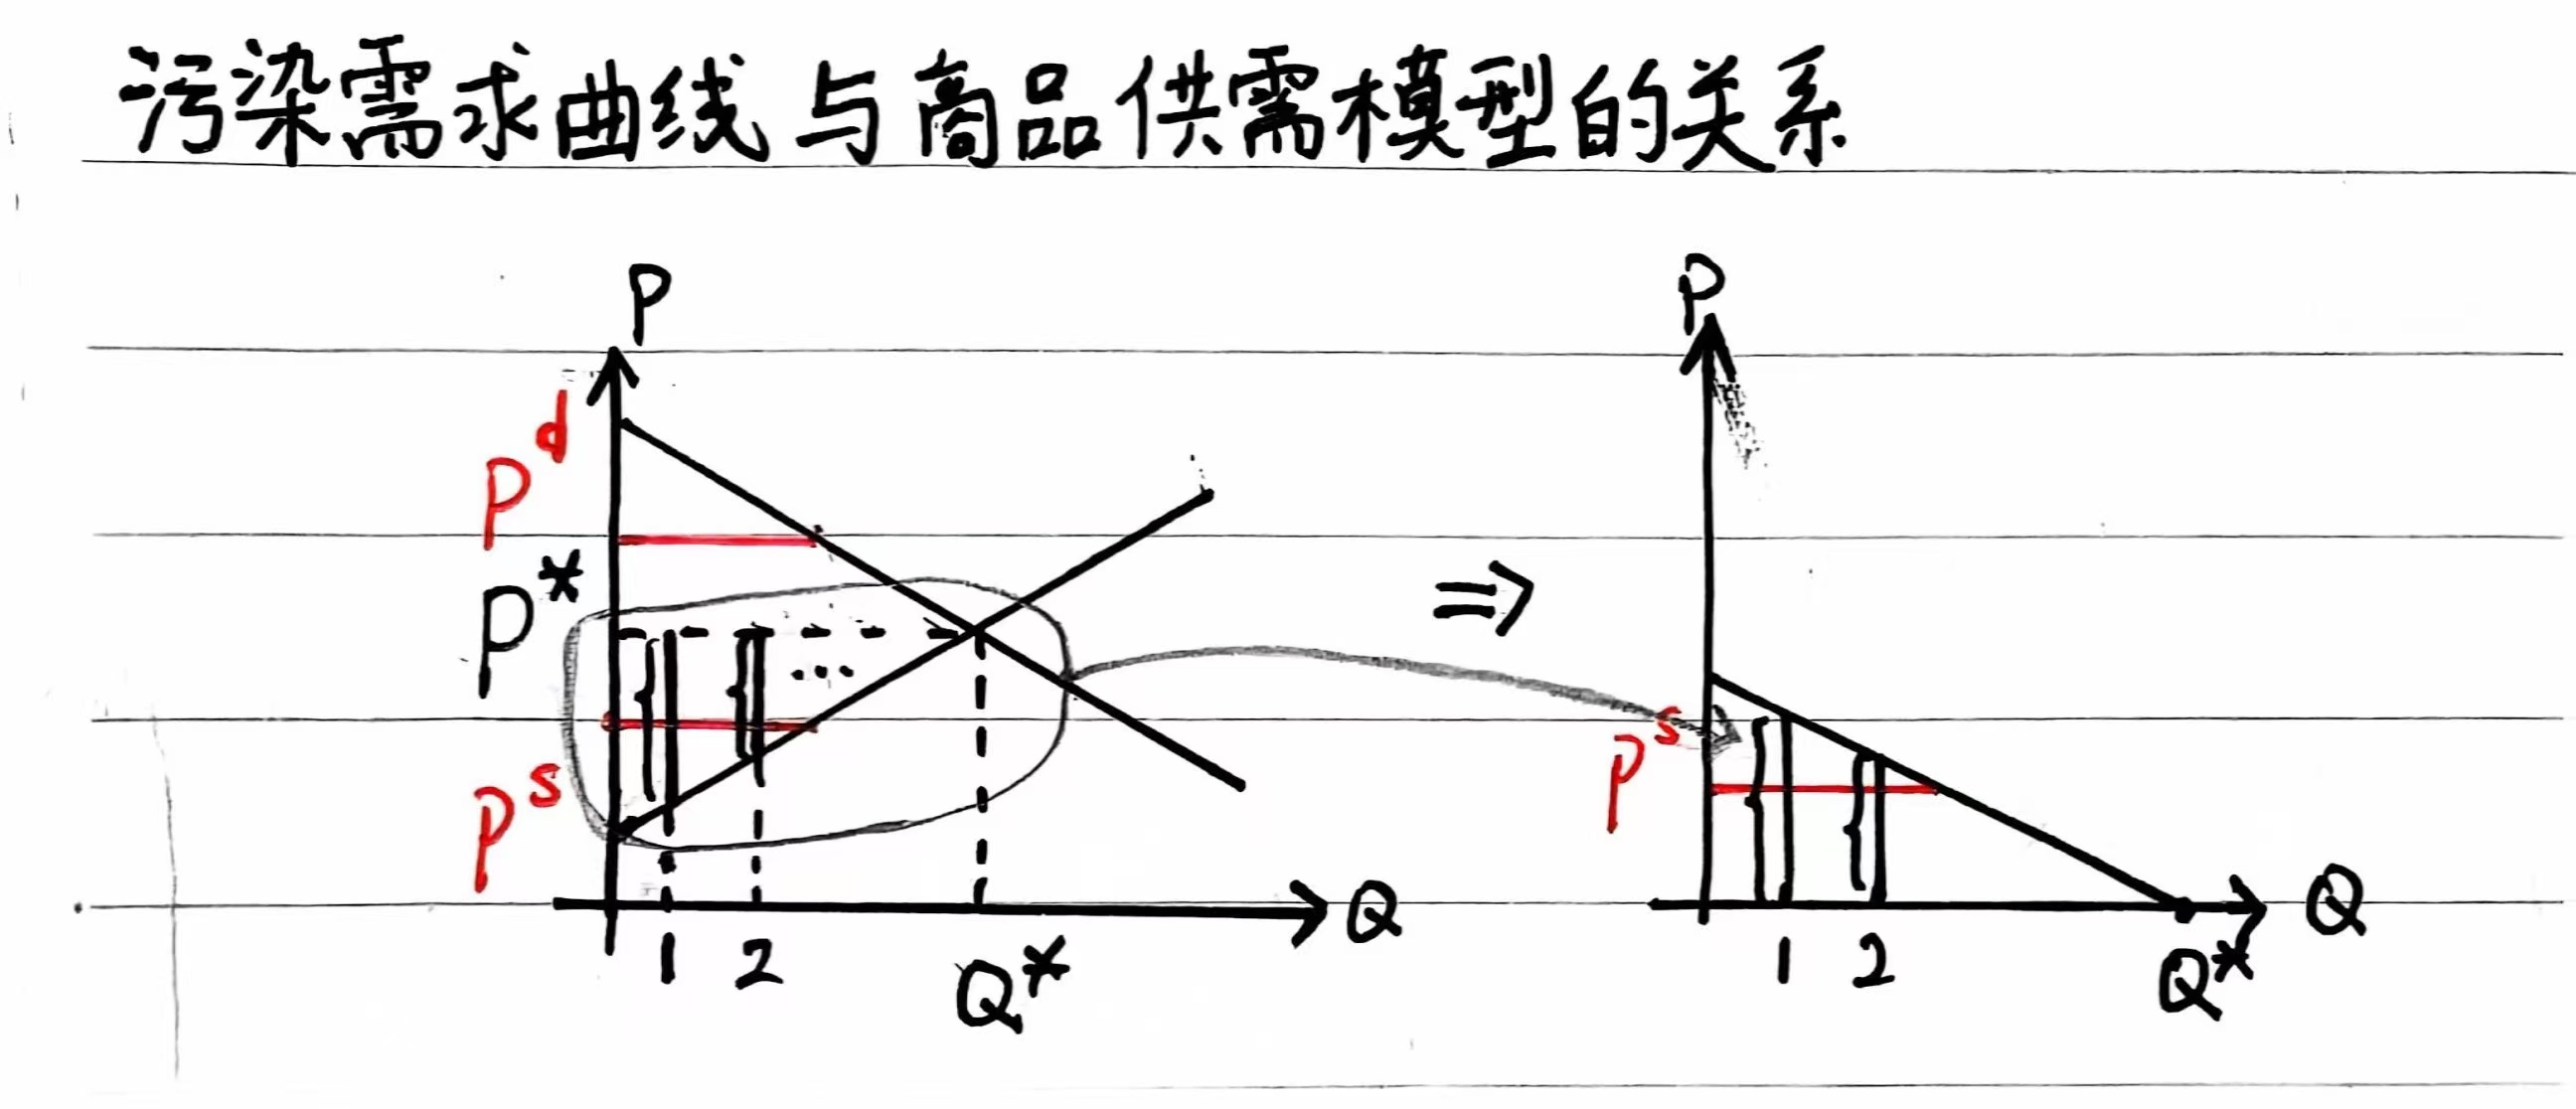 污染需求曲线与商品供需模型的关系
P
P^d
P*
P^s
1 2 Q* Q
⇒
P
P^s
1 2 Q* Q